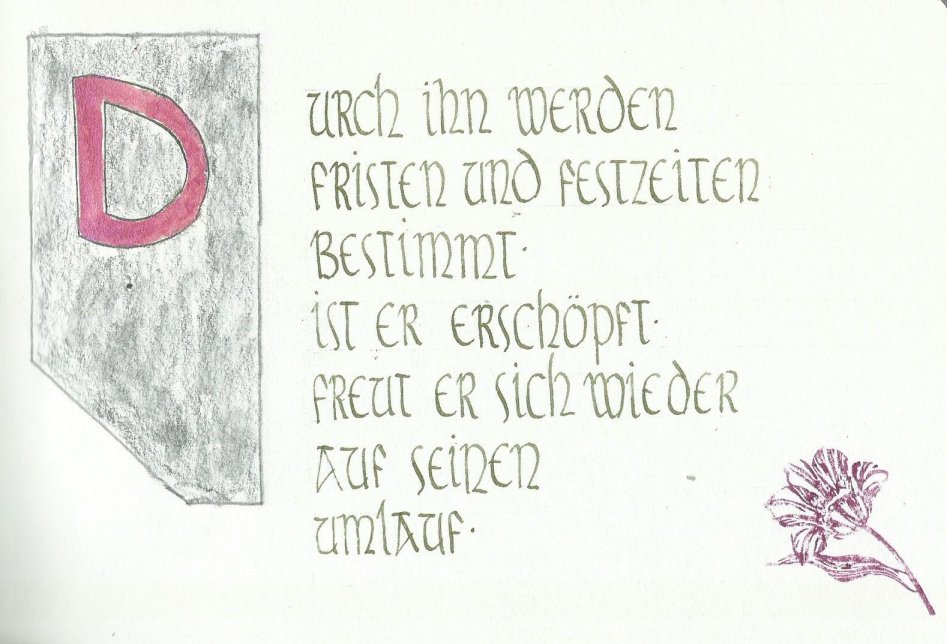 Durch ihn werden
Fristen und Festzeiten
bestimmt·
ist er erschöpft·
freut er sich wieder
auf seinen
Umlauf·